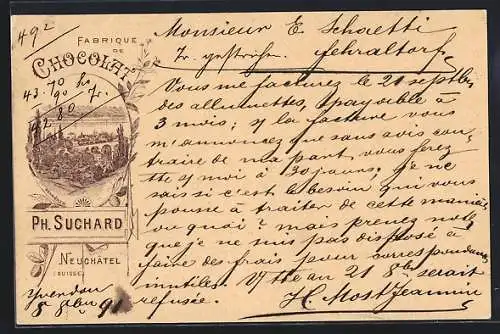 492
FABRIQUE
DE
CHOCOLAT
43.70
90
42.80
PH. SUCHARD
NEUCHÂTEL
(SUISSE)
Yverdon
8 8bre 91
Monsieur E. Schaetti
Fehraltorf
Vous me facturez le 21 septbre
des allumettes, payable à
3 mois; et la facture vous
m'annoncez que sans avis con-
traire de ma part, vous ferez
à 30 jours. Je ne
sais si c'est le besoin qui vous
pousse à traiter de cette manière
ou quoi? mais prenez note
que je ne suis pas disposé à
faire des frais pour correspondances
inutiles. au 21 8bre serait
refusée.